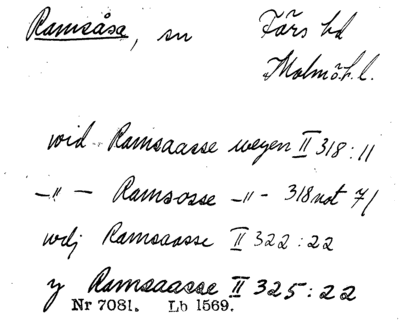 Ramsåsa, sn Färs hd
Malmöh. l.
wid Ramsaasse wegen II 318:11
–"– Ramsosse –"– 318 not 7/
wdj Ramsaasse II 322:22
y Ramsaasse II 325:22
Nr 7081. Lb 1569.